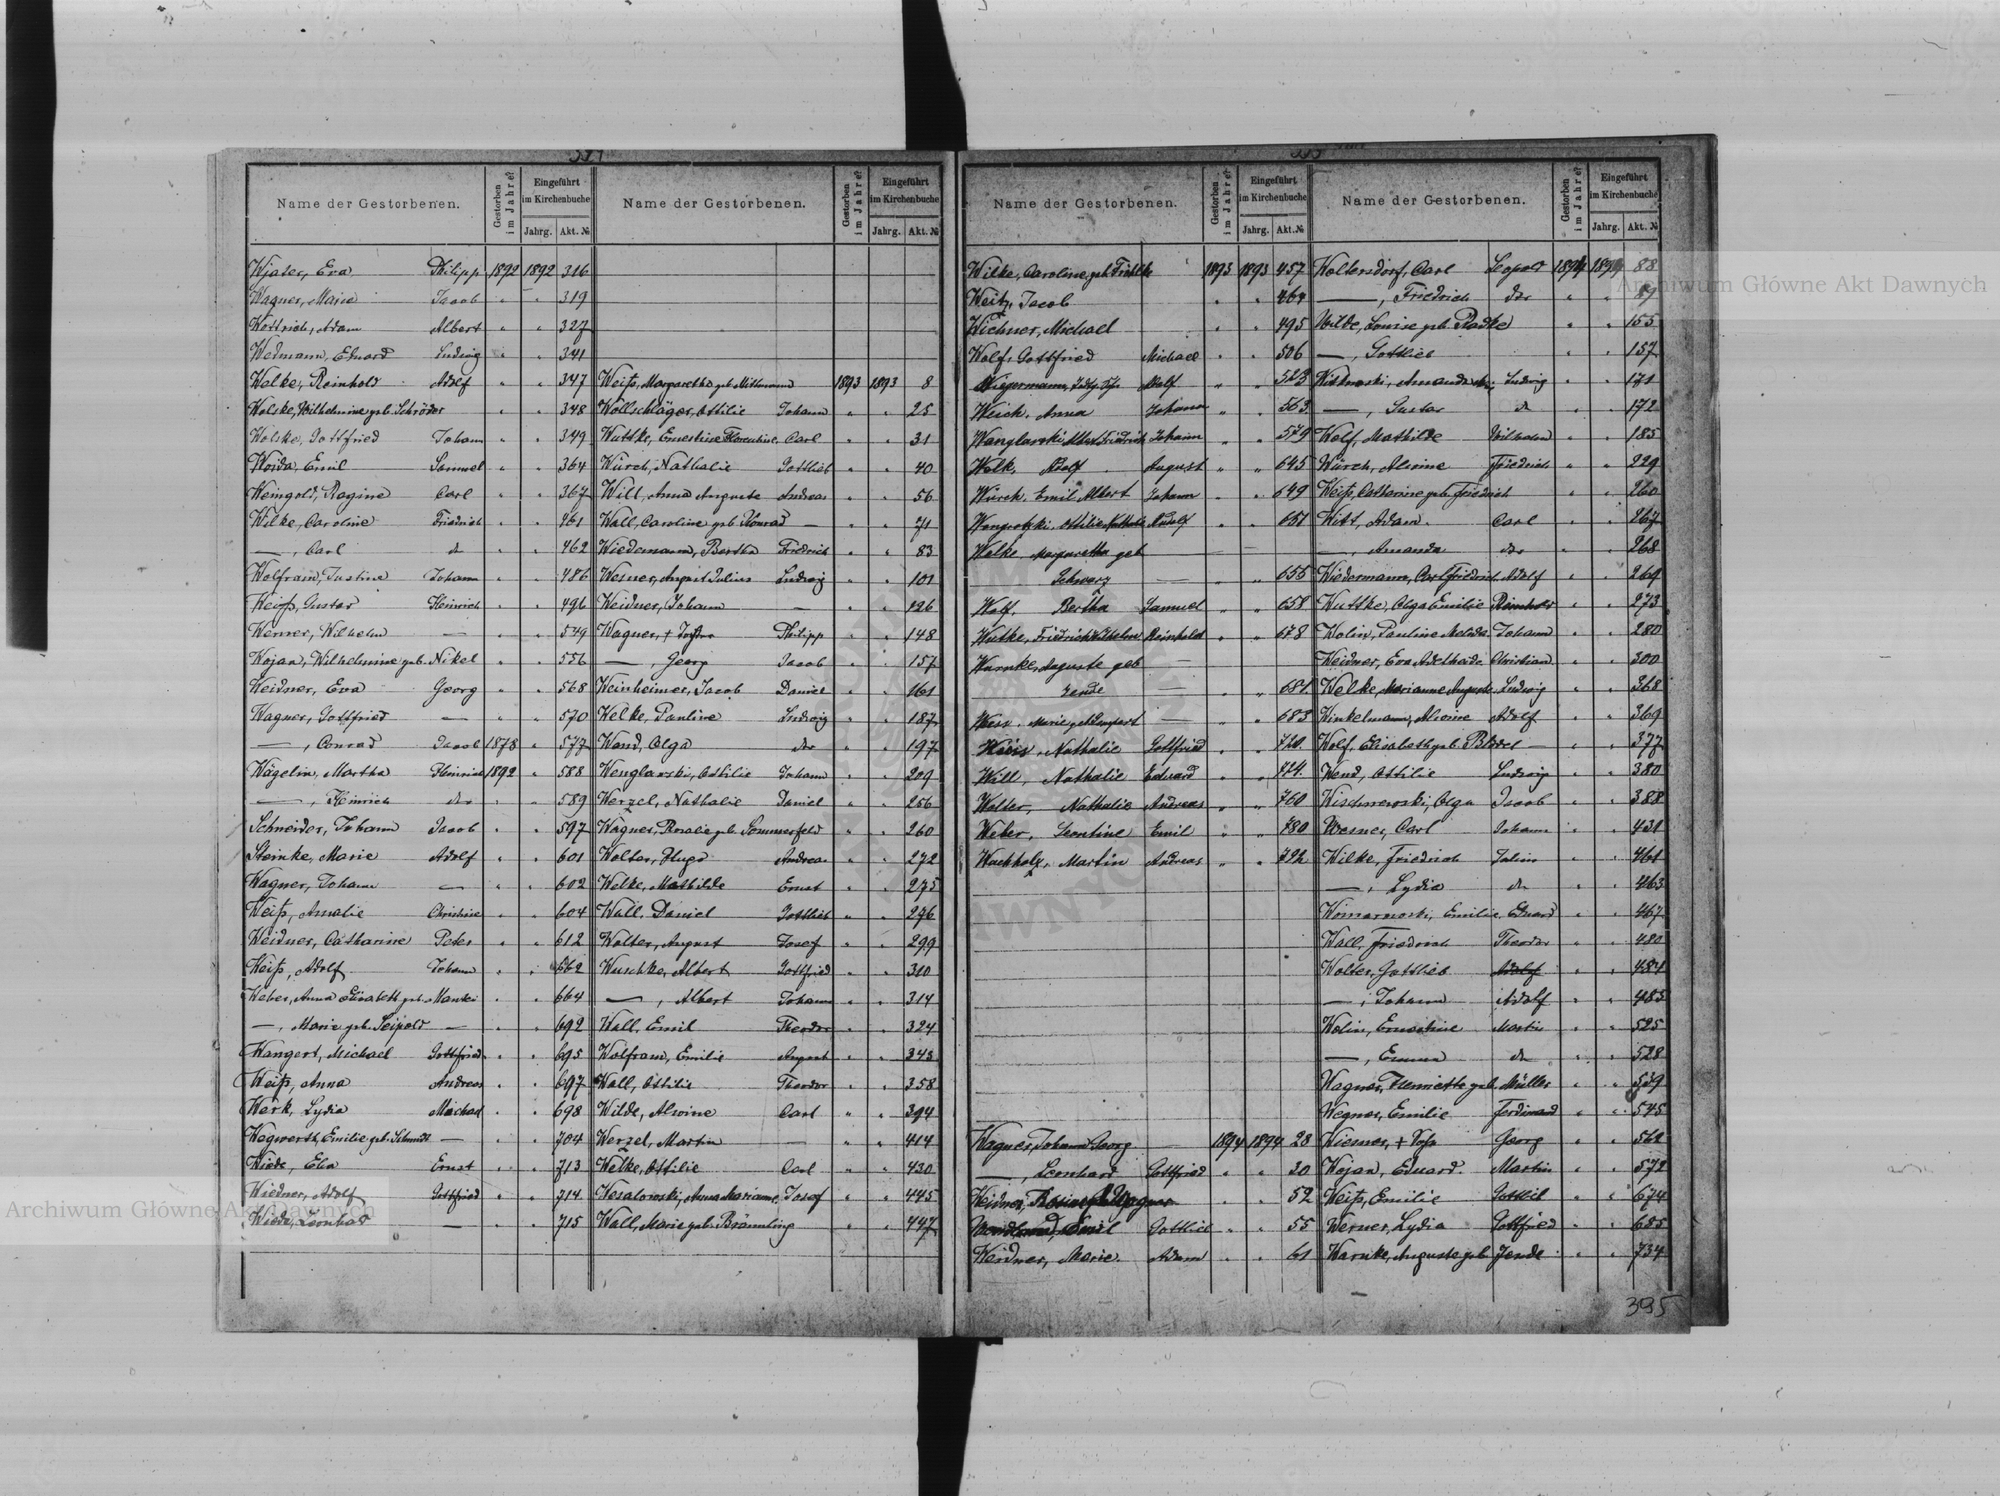 Name der Gestorbenen. Gestorben im Jahre? Eingeführt im Kirchenbuche Jahrg. Akt. №
Wjater, Eva Philipp 1892 1892 316
Wagner, Marie Jacob " " 319
Wottrich, Adam Albert " " 327
Weimann, Eduard Ludwig " " 341
Welke, Reinhold Adolf " " 347
Wolske, Wilhelmine geb. Schröder " " 348
Wolske, Gottfried Johann " " 349
Woida, Emil Samuel " " 364
Weingold, Regine Carl " " 367
Wilke, Caroline Friedrich " " 461
—, Carl do " " 462
Wolfram, Justine Johann " " 486
Weiß, Gustav Heinrich " " 496
Werner, Wilhelm — " " 549
Wojan, Wilhelmine geb. Nikel " " 556
Weidner, Eva Georg " " 568
Wagner, Gottfried — " " 570
—, Conrad Jacob 1878 " 577
Wägelin, Martha Heinrich 1892 " 588
—, Heinrich do " " 589
Schneider, Johann Jacob " " 597
Steinke, Marie Adolf " " 601
Wagner, Johann — " " 602
Weiß, Amalie Christine " " 604
Weidner, Catharine Peter " " 612
Weiß, Adolf Johann " " 662
Weber, Anna Elisabeth geb. Manski " " 664
—, Marie geb. Leipold — " " 692
Wangert, Michael Gottfried " " 695
Weiß, Anna Andreas " " 697
Werk, Lydia Michael " " 698
Wegwerth, Emilie geb. Schmidt — " " 704
Wiede, Eva Ernst " " 713
Wiedner, Adolf Gottfried " " 714
Wiede, Leonhard — " " 715
Name der Gestorbenen. Gestorben im Jahre? Eingeführt im Kirchenbuche Jahrg. Akt. №
Weiß, Margaretha geb. Mittmann 1893 1893 8
Wollschläger, Ottilie Johann " " 25
Wuttke, Ernestine Florentine Carl " " 31
Würch, Nathalie Gottlieb " " 40
Will, Anna Auguste Andreas " " 56
Wall, Caroline geb. Konrad — " " 71
Wiedemann, Bertha Friedrich " " 83
Wesner, August Julius Ludwig " " 101
Weidner, Johann — " " 126
Wagner, + Philipp " " 148
—, Georg Jacob " " 157
Weinheimer, Jacob Daniel " " 161
Welke, Pauline Ludwig " " 187
Wend, Olga do " " 197
Wenglarski, Ottilie Johann " " 209
Werzel, Nathalie Daniel " " 256
Wagner, Rosalie geb. Sommerfeld " " 260
Wolter, Hugo Andreas " " 272
Welke, Mathilde Ernst " " 275
Wall, Daniel Gottlieb " " 276
Wolter, August Josef " " 299
Wuschke, Albert Gottfried " " 310
—, Albert Johann " " 314
Wall, Emil Theodor " " 324
Wolfram, Emilie August " " 343
Wall, Ottilie Theodor " " 358
Wilde, Alwine Carl " " 394
Werzel, Martin — " " 414
Welke, Ottilie Carl " " 430
Wesalowski, Anna Marianne Josef " " 445
Wall, Marie geb. Brämmling " " 447
Name der Gestorbenen. Gestorben im Jahre? Eingeführt im Kirchenbuche Jahrg. Akt. №
Wilke, Caroline geb. 1893 1893 457
Weitz, Jacob " " 464
Wichner, Michael " " 495
Wolf, Gottfried Michael " " 506
Wiegermann, Adolf " " 523
Weich, Anna Johann " " 563
Wenglarski Albert Friedrich Johann " " 579
Wolk, Adolf August " " 645
Würch, Emil Albert Johann " " 649
Wengrotzki, Ottilie Nathalie Rudolf " " 651
Welke, Margaretha geb
Schwarz — " " 655
Wolf, Bertha Samuel " " 658
Wutke, Friedrich Wilhelm Reinhold " " 678
Warnke, Auguste geb —
Jende — " " 681
Wess, Marie — " " 683
Weiss, Nathalie Gottfried " " 720
Will, Nathalie Eduard " " 724
Wolter, Nathalie Andreas " " 760
Weber, Leontine Emil " " 780
Wachholz, Martin Andreas " " 792
Wagner, Johann Georg — 1894 1894 28
—, Leonhard Gottfried " " 30
Weidner, geb. Wagner 52
Wendland, Emil Gottlieb " " 55
Weidner, Marie Adam " " 61
Name der Gestorbenen. Gestorben im Jahre? Eingeführt im Kirchenbuche Jahrg. Akt. №
Woltersdorf, Carl Leopold 1894 1894 88
—, Friedrich do " " 89
Wilde, Louise geb. Radke " " 155
—, Gottlieb " " 157
Witkowski, Amanda Ludwig " " 171
—, Gustav do " " 172
Wolf, Mathilde Wilhelm " " 185
Würch, Alwine Friedrich " " 229
Weiß, Catharine geb. Friedrich " " 260
Witt, Adam Carl " " 267
—, Amanda do " " 268
Wiedermann, Carl Friedrich Adolf " " 269
Wuttke, Olga Emilie Reinhold " " 273
Wolin, Pauline Melida Johann " " 280
Weidner, Eva Adelheide Christian " " 300
Welke, Marianne Auguste Ludwig " " 368
Winkelmann, Alwine Adolf " " 369
Wolf, Elisabeth geb. — " " 377
Wend, Ottilie Ludwig " " 380
Wischnewski, Olga Jacob " " 388
Wesner, Carl Johann " " 431
Wilke, Friedrich Julius " " 461
—, Lydia do " " 463
Womarnoski, Emilie Eduard " " 467
Wall, Friedrich Theodor " " 480
Wolter, Gottlieb Adolf " " 484
—, Johann Adolf " " 485
Wolin, Ernestine Martin " " 525
—, Emma do " " 528
Wagner, Henriette geb. Müller " " 539
Wegner, Emilie Ferdinand " " 545
Wiesner, + Georg " " 562
Wojan, Eduard Martin " " 572
Weiß, Emilie Gottlieb " " 674
Werner, Lydia Gottfried " " 685
Warnke, Auguste geb. Jende " " 734
395
Archiwum Główne Akt Dawnych
Archiwum Główne Akt Dawnych